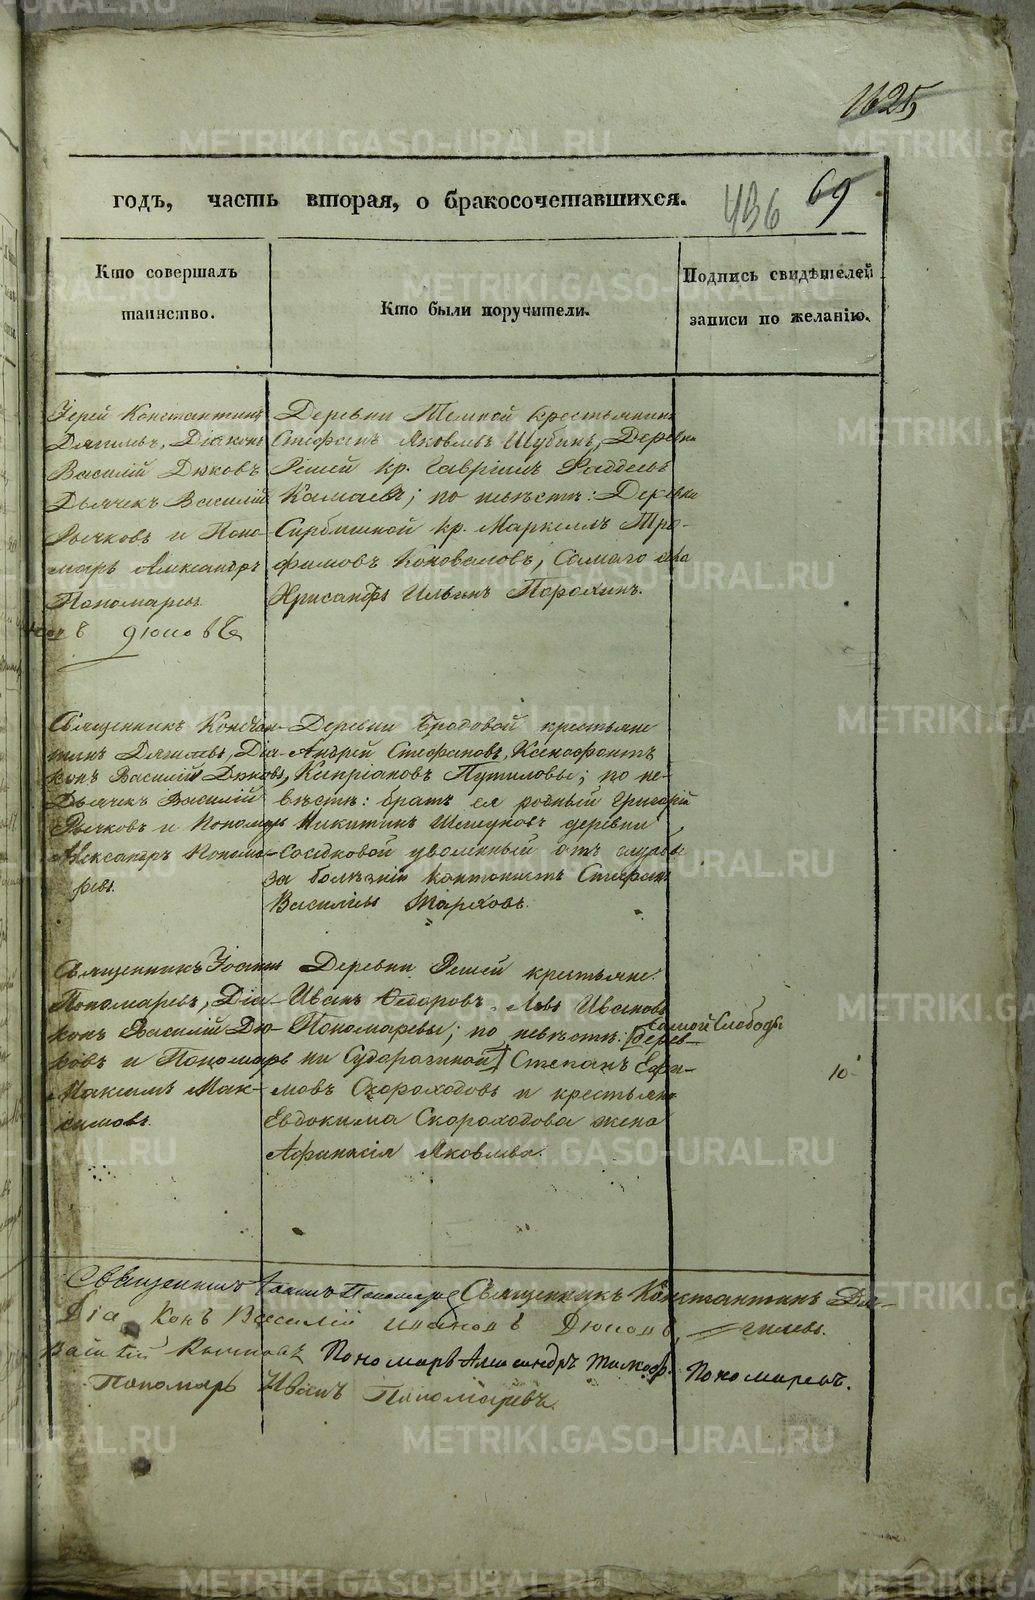 1625
годъ, часть вторая, о бракосочетавшихся.
436 69
Кто совершалъ
таинство.
Кто были поручители.
Подпись свидѣтелей
записи по желанію.
Іерей Константинъ
Дягилевъ, Діаконъ
Василій Дюковъ
Дьячекъ Василій
Рычковъ и Поно-
марь Александръ
Пономаревъ
Дюковъ
Деревни Темной крестьянинъ
Стефанъ Яковлевъ Шубинъ, Деревни
Решей кр. Гавріилъ Фаддеевъ
Камаевъ; по невѣстѣ: Деревни
кр. Маркеллъ Тро-
фимовъ Коноваловъ, Самаго села
Хрисанфъ Ильинъ Порохинъ.
Священникъ Констан-
тинъ Дягилевъ, Діа-
конъ Василій Дюковъ,
Дьячекъ Василій
Рычковъ и Пономарь
Александръ Понома-
ревъ.
Деревни Бродовой крестьяне
Андрей Стефановъ, Ксенофонтъ
Кипріановъ Путиловы; по не-
вѣстѣ: братъ ея родный Григорій
Никитинъ деревни
уволенный отъ службы
за болѣзнію кантонистъ Стефанъ
Васильевъ
Священникъ Іоаннъ
Пономаревъ, Діа-
конъ Василій Дю-
ковъ и Пономарь
Максимъ Мак-
симовъ.
Деревни Решей крестьяне
Иванъ Федоровъ, Левъ Ивановъ
Пономаревы; по невѣстѣ: [Дерев-
самой Слободы
ни Сударагиной] Степанъ Ефи-
мовъ Скороходовъ и крестьянина
Евдокима Скороходова жена
Афанасія Яковлева.
10
Священникъ Іоаннъ Пономаревъ Священникъ Константинъ Дя-
гилевъ.
Діаконъ Василій Ивановъ Дюковъ
Василей Рычковъ Пономарь Александръ Пономаревъ.
Пономарь Иванъ Пономаревъ.
METRIKI.GASO-URAL.RU